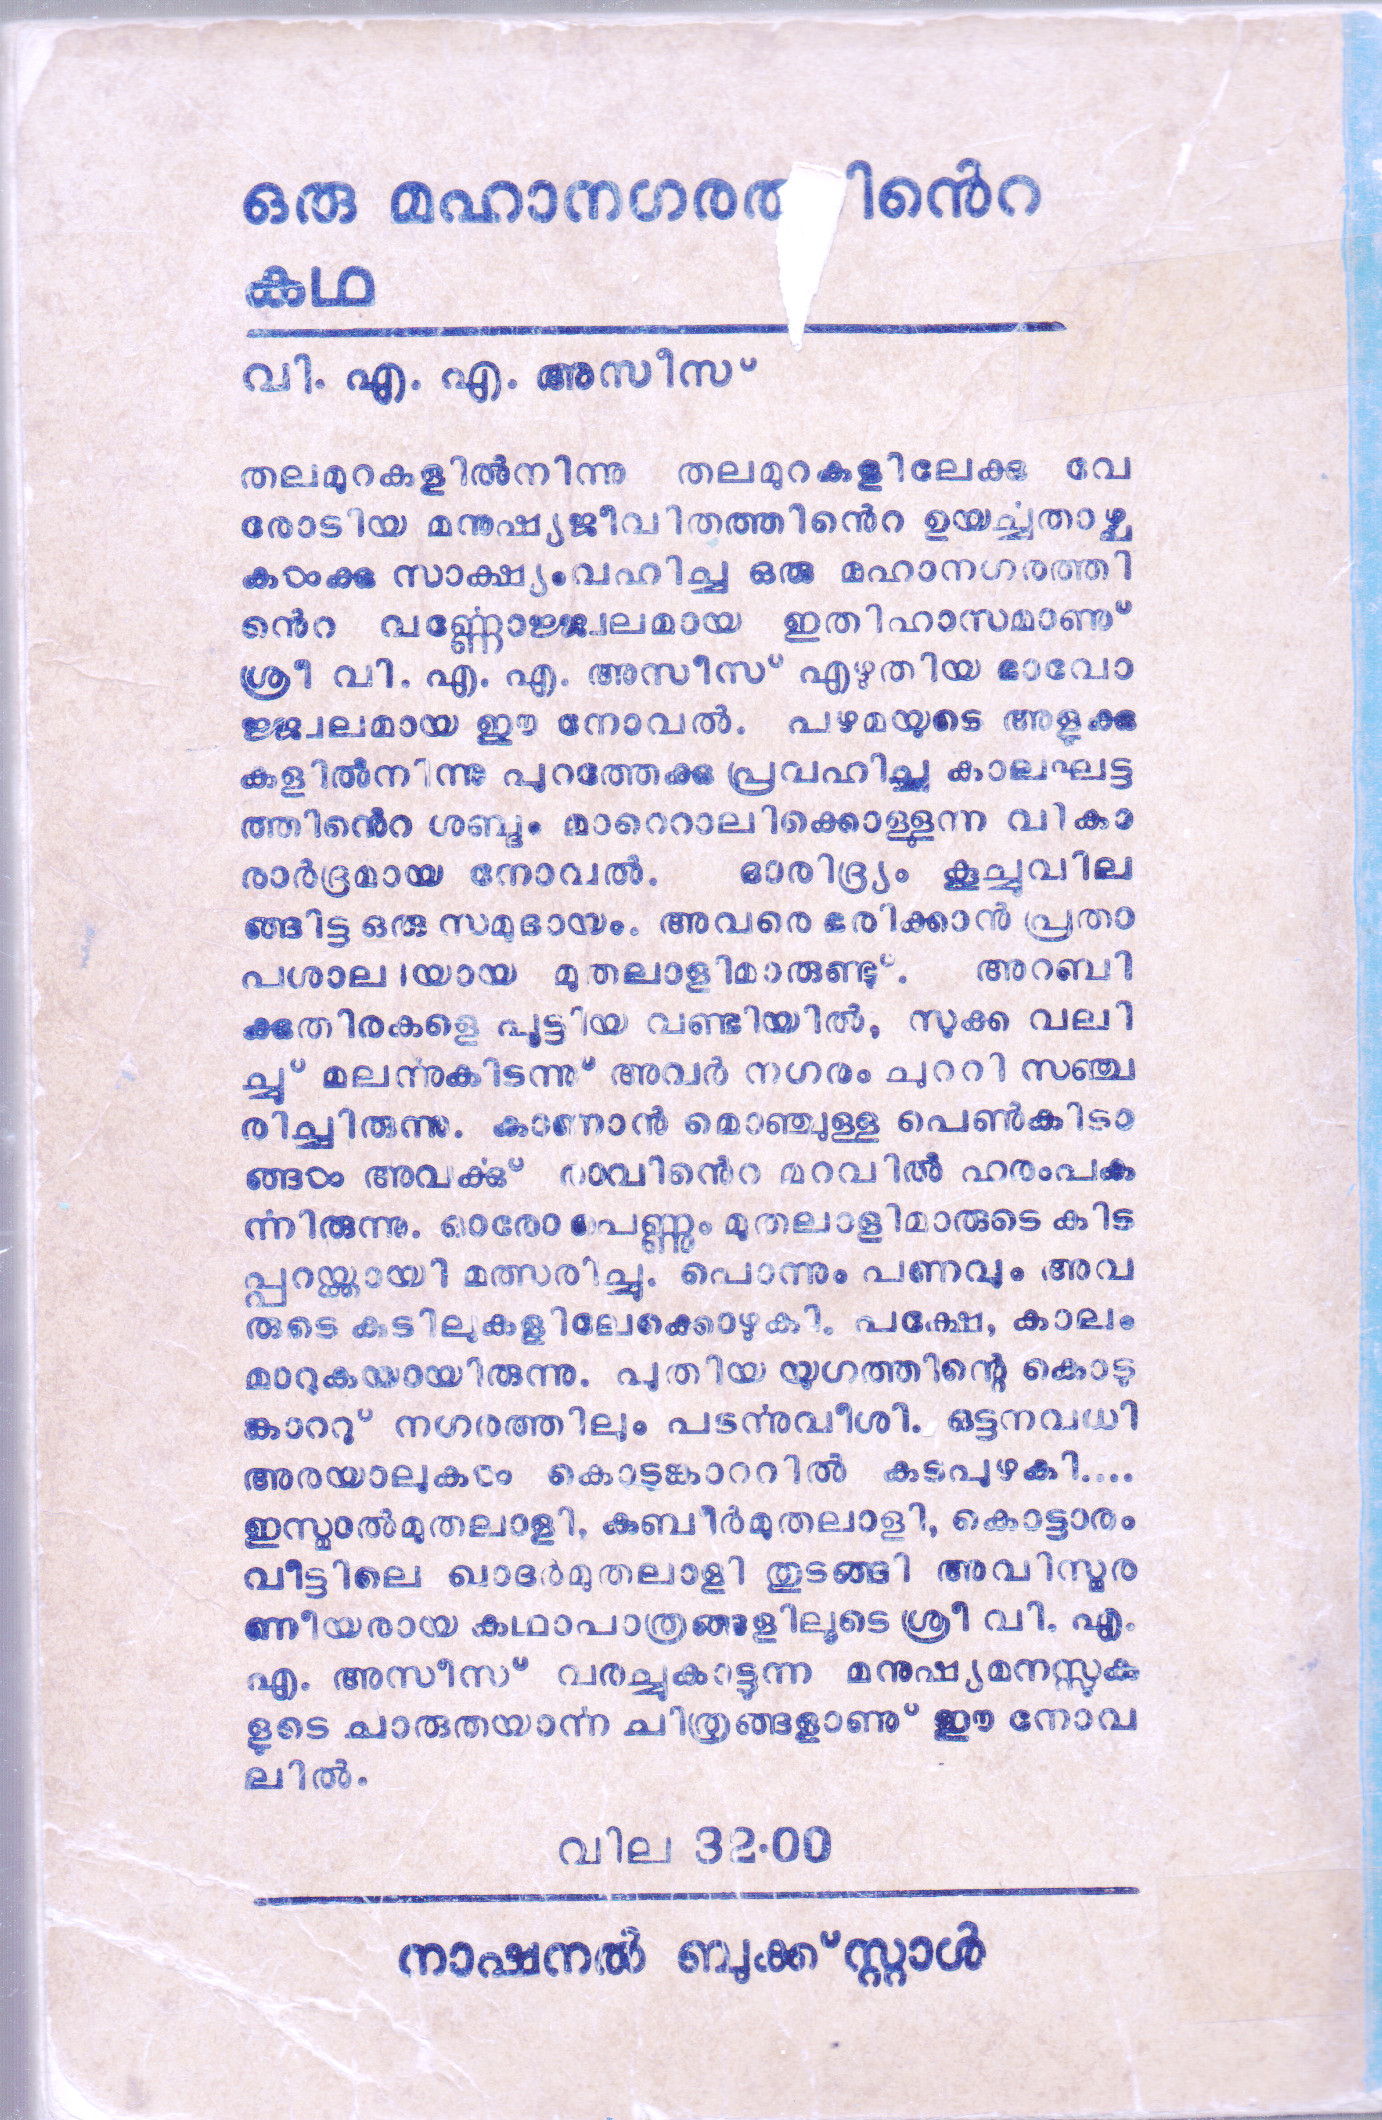 ഒരു മഹാനഗരത്തിൻെറ
കഥ
വി. എ. എ. അസീസ്
തലമുറകളിൽനിന്നു തലമുറകളിലേക്കു വേ
രോടിയ മനുഷ്യജീവിതത്തിൻെറ ഉയർച്ചതാഴ്ച
കൾക്കു സാക്ഷ്യംവഹിച്ച ഒരു മഹാനഗരത്തി
ൻെറ വർണ്ണോജ്ജ്വലമായ ഇതിഹാസമാണു്
ശ്രീ വി. എ. എ. അസീസ് എഴുതിയ ഭാവോ
ജ്ജ്വലമായ ഈ നോവൽ. പഴമയുടെ അളുക്കു
കളിൽനിന്നു പുറത്തേക്കു പ്രവഹിച്ച കാലഘട്ട
ത്തിൻെറ ശബ്ദം മാറെറാലിക്കൊള്ളുന്ന വികാ
രാർദ്രമായ നോവൽ. ദാരിദ്ര്യം കൂച്ചുവില
ങ്ങിട്ട ഒരു സമുദായം. അവരെ ഭരിക്കാൻ പ്രതാ
പശാലിയായ മുതലാളിമാരുണ്ടു്. അറബി
ക്കുതിരകളെ പൂട്ടിയ വണ്ടിയിൽ, സുക്ക വലി
ച്ചു് മലർന്നുകിടന്നു് അവർ നഗരം ചുററി സഞ്ച
രിച്ചിരുന്നു. കാണാൻ മൊഞ്ചുള്ള പെൺകിടാ
ങ്ങൾ അവർക്കു് രാവിൻെറ മറവിൽ ഹരംപക
ർന്നിരുന്നു. ഓരോ പെണ്ണും മുതലാളിമാരുടെ കിട
പ്പറയ്ക്കായി മത്സരിച്ചു. പൊന്നും പണവും അവ
രുടെ കുടിലുകളിലേക്കൊഴുകി. പക്ഷേ, കാലം
മാറുകയായിരുന്നു. പുതിയ യുഗത്തിന്റെ കൊടു
ങ്കാററു് നഗരത്തിലും പടർന്നുവീശി. ഒട്ടനവധി
അരയാലുകൾ കൊടുങ്കാററിൽ കടപുഴകി....
ഇസ്മാൽമുതലാളി, കബീർമുതലാളി, കൊട്ടാരം
വീട്ടിലെ ഖാദർമുതലാളി തുടങ്ങി അവിസ്മര
ണീയരായ കഥാപാത്രങ്ങളിലൂടെ ശ്രീ വി. എ.
എ. അസീസ് വരച്ചുകാട്ടുന്ന മനുഷ്യമനസ്സുക
ളുടെ ചാരുതയാർന്ന ചിത്രങ്ങളാണു് ഈ നോവ
ലിൽ.
വില 32·00
നാഷനൽ ബുക്ക്സ്റ്റാൾ